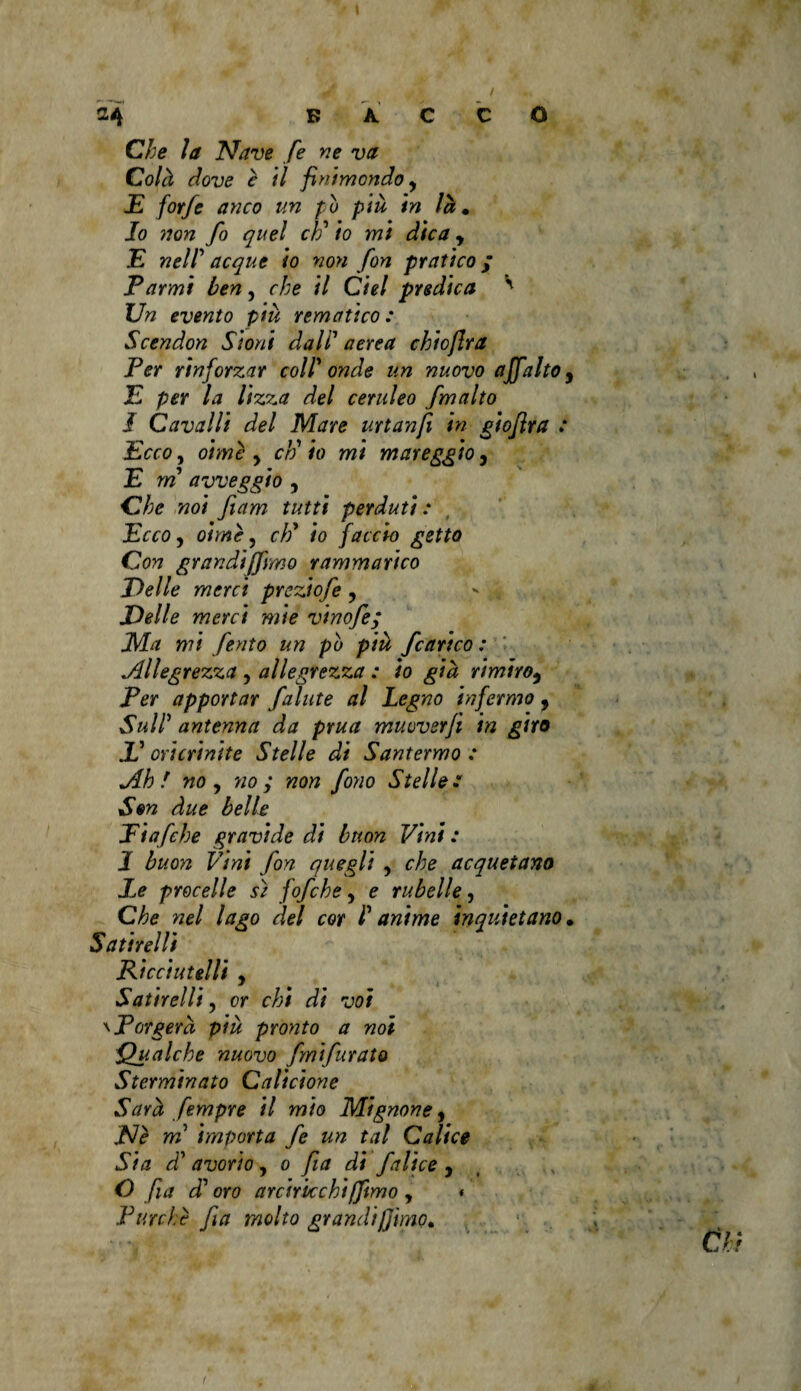 24 BACCO
Che la Nave ſe ne va
Colà dove è il finimondo,
E forſe anco un pò più in là.
Io non ſo quel ch' io mi dica,
E nell' acque io non ſon pratico;
Parmi ben, che il Ciel predica
Un evento più rematico:
Scendon Sioni dall' aerea chioſtra
Per rinforzar coll' onde un nuovo aſſalto,
E per la lizza del ceruleo ſmalto
I Cavalli del Mare urtanſi in gioſtra:
Ecco, oimè, ch' io mi mareggio,
E m' avveggio,
Che noi ſiam tutti perduti:
Ecco, oimè, ch' io faccio getto
Con grandiſſimo rammarico
Delle merci prezioſe,
Delle merci mie vinoſe;
Ma mi ſento un pò più ſcarico:
Allegrezza, allegrezza: io già rimiro,
Per apportar ſalute al Legno infermo,
Sull' antenna da prua muoverſi in giro
L' oricrinite Stelle di Santermo:
Ah! no, no; non ſono Stelle:
Son due belle
Fiaſche gravide di buon Vini:
I buon Vini ſon quegli, che acquetano
Le procelle sì foſche, e rubelle,
Che nel lago del cor l' anime inquietano.
Satirelli
Ricciutelli,
Satirelli, or chi di voi
Porgerà più pronto a noi
Qualche nuovo ſmiſurato
Sterminato Calicione
Sarà ſempre il mio Mignone,
Nè m' importa ſe un tal Calice
Sia d' avorio, o ſia di ſalice,
O ſia d' oro arciricchiſſimo,
Purchè ſia molto grandiſſimo.
Chi